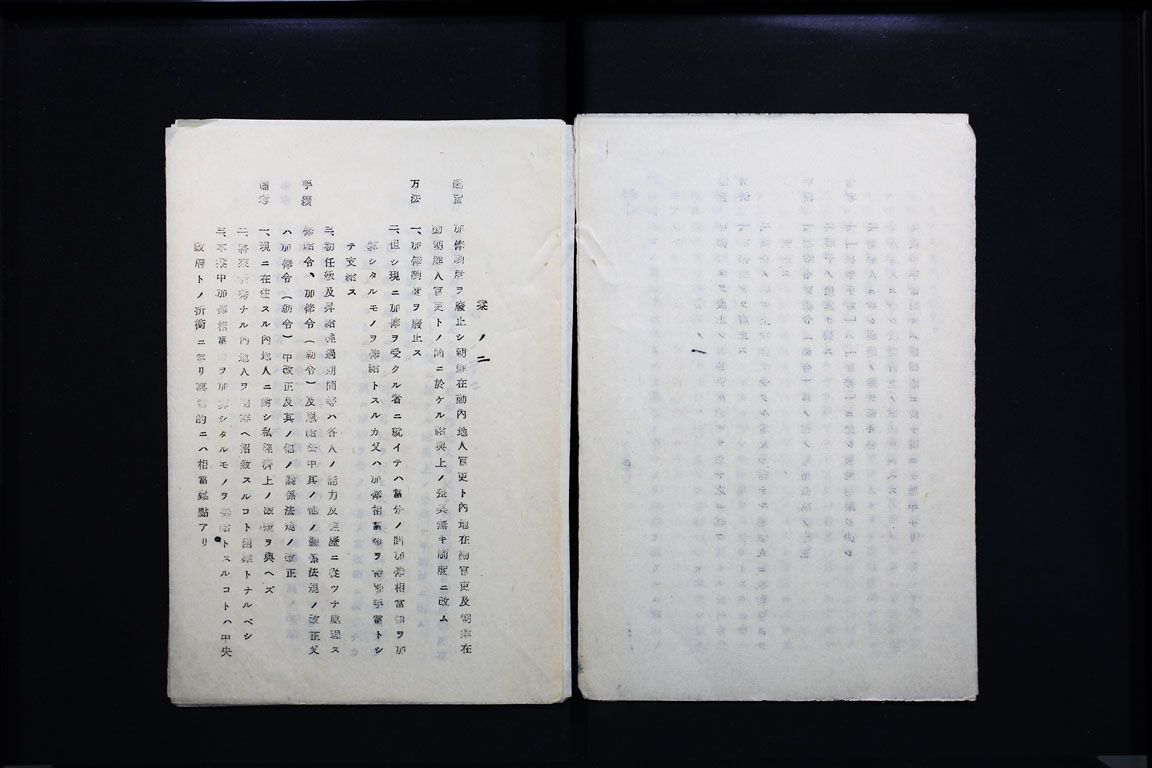 案ノ二
趣旨 加俸制度ヲ廢止シ朝鮮在勤內地人官吏ト內地在勤官吏及朝鮮在
勤朝鮮人官吏トノ間ニ於ケル給與上ノ差異無キ制度ニ改ム
方法 一、加俸制度ヲ廢止ス
二、但シ現ニ加俸ヲ受クル者ニ就イテハ當分ノ間加俸相當額ヲ加
算シタルモノヲ俸給トスルカ又ハ加俸相當額ヲ特別手當トシ
テ支給ス
三、初任級及昇給經過期間等ハ各人ノ能力及履歷ニ從ツテ處理ス
手續 俸給令、加俸令(勅令)及恩給法中其ノ他ノ關係法規ノ改正又
ハ加俸令(勅令)中改正及其ノ他ノ關係法規ノ改正
備考 一、現ニ在住スル內地人ニ對シ私經濟上ノ激變ヲ與ヘズ
二、將來優秀ナル內地人ヲ朝鮮ヘ招致スルコト困難トナルベシ
三、本案中加俸相當額ヲ加算シタルモノヲ俸給トスルコトハ中央
政府トノ折衝ニ當リ事務的ニハ相當難點アリ